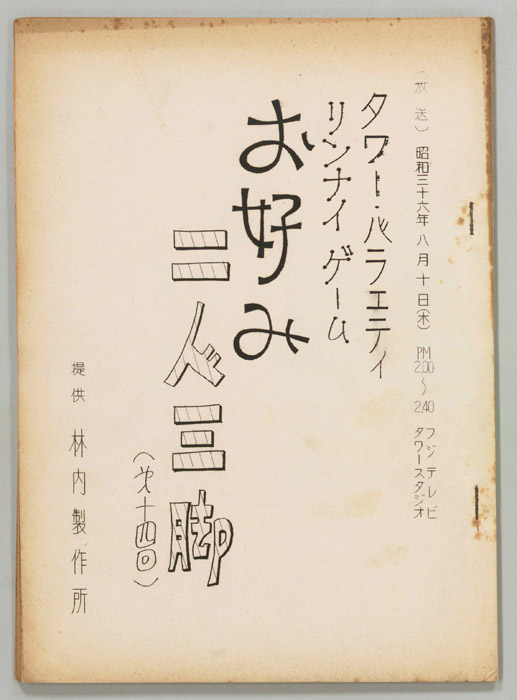 (放送) 昭和三十六年八月十日(木) PM 2.00〜2.40 フジテレビ タワースタジオ
タワー・バラエティ
リンナイゲーム
お好み
二人三脚
(第十四回)
提供 林内製作所